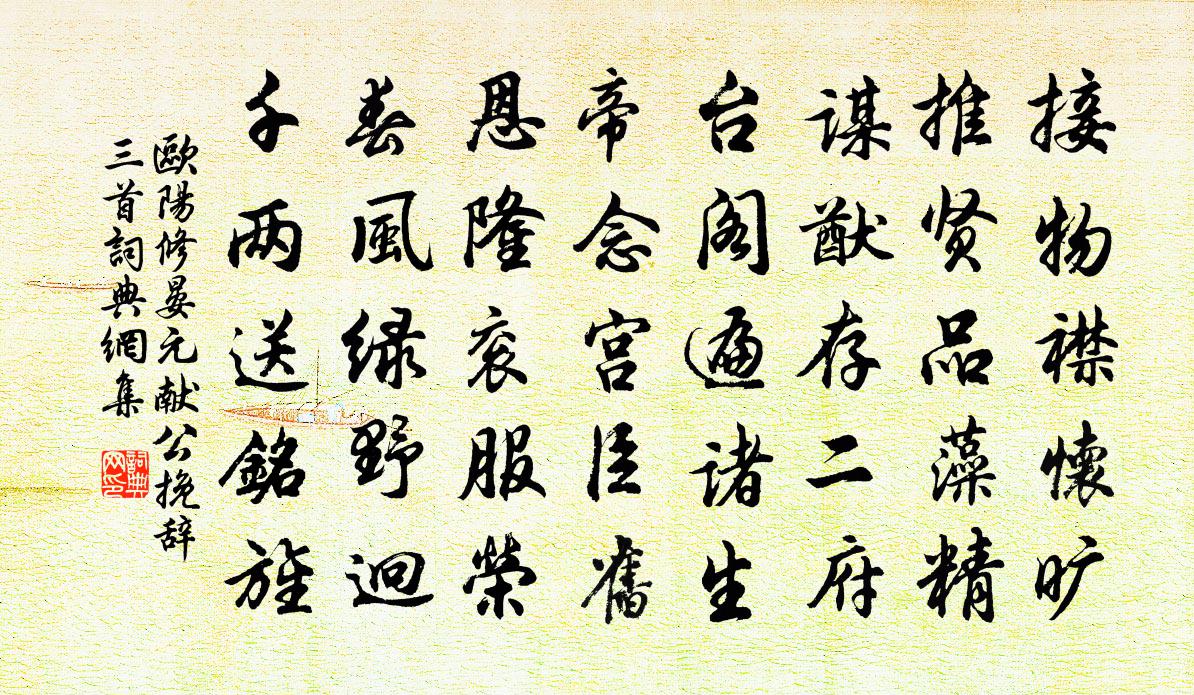 接物襟懷旷
推贤品藻精
謀猷存二府
台阁遍诸生
帝念宫臣舊
恩隆衮服榮
春風绿野迥
千两送銘旌
歐陽修晏元献公挽辞
三首詞典網集
詞典
网印